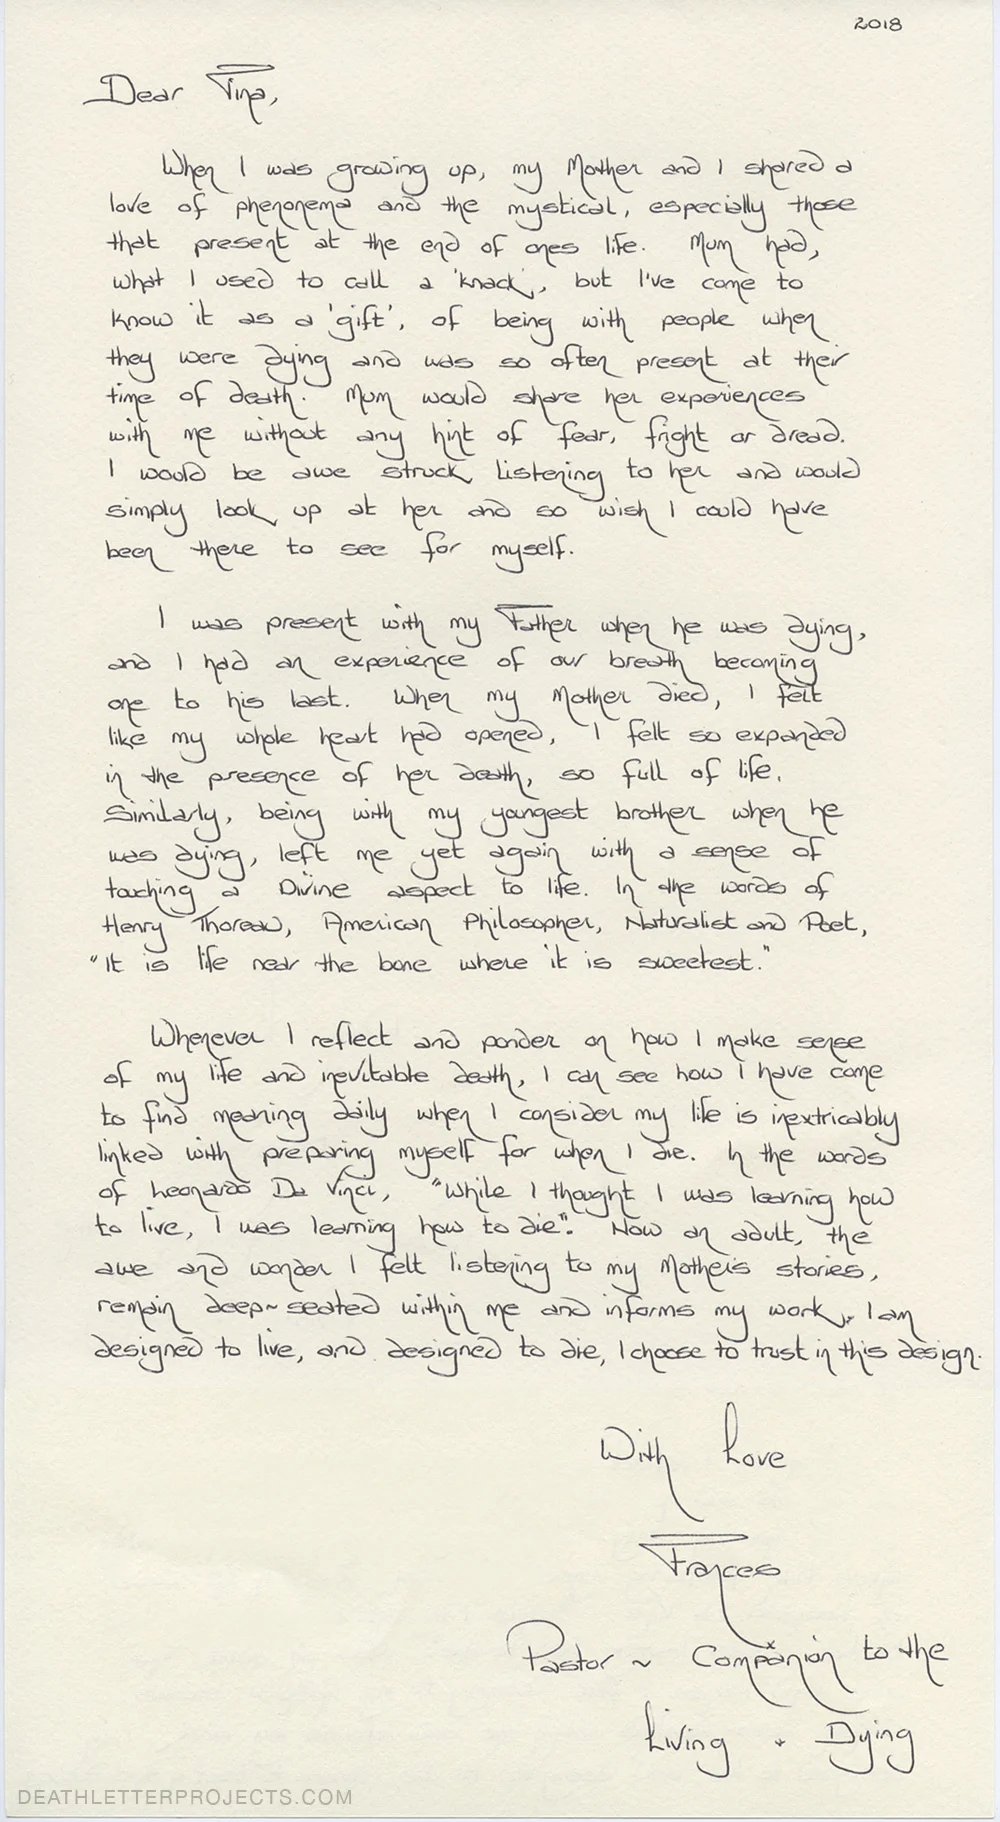 2018
Dear Tina,
When I was growing up, my Mother and I shared a
love of phenonema and the mystical, especially those
that present at the end of ones life. Mum had,
what I used to call a 'knack', but I've come to
know it as a 'gift', of being with people when
they were dying and was so often present at their
time of death. Mum would share her experiences
with me without any hint of fear, fright or dread.
I would be awe struck listening to her and would
simply look up at her and so wish I could have
been there to see for myself.
I was present with my Father when he was dying,
and I had an experience of our breath becoming
one to his last. When my Mother died, I felt
like my whole heart had opened, I felt so expanded
in the presence of her death, so full of life.
Similarly, being with my youngest brother when he
was dying, left me yet again with a sense of
touching a Divine aspect to life. In the words of
Henry Thoreau, American Philosopher, Naturalist and Poet,
"It is life near the bone where it is sweetest."
Whenever I reflect and ponder on how I make sense
of my life and inevitable death, I can see how I have come
to find meaning daily when I consider my life is inextricably
linked with preparing myself for when I die. In the words
of Leonardo Da Vinci, "While I thought I was learning how
to live, I was learning how to die". Now an adult, the
awe and wonder I felt listening to my Mother's stories,
remain deep~seated within me and informs my work. I am
designed to live, and designed to die, I choose to trust in this design.
With Love
Frances
Pastor ~ Companion to the
Living + Dying
DEATHLETTERPROJECTS.COM